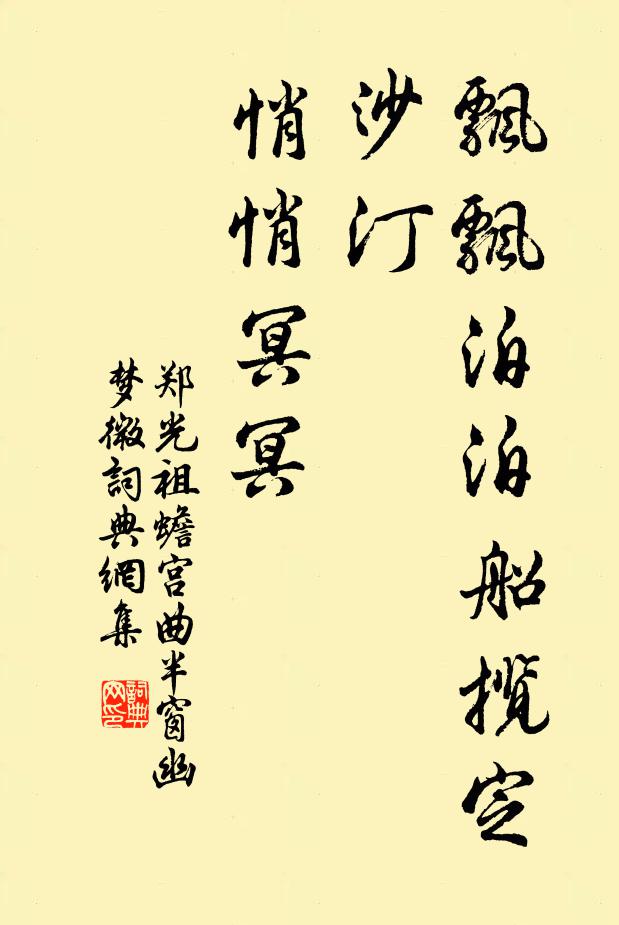 飄飄泊泊船揽定
沙汀
悄悄冥冥
郑光祖蟾宫曲半窗幽
梦微詞典網集
詞典
网印